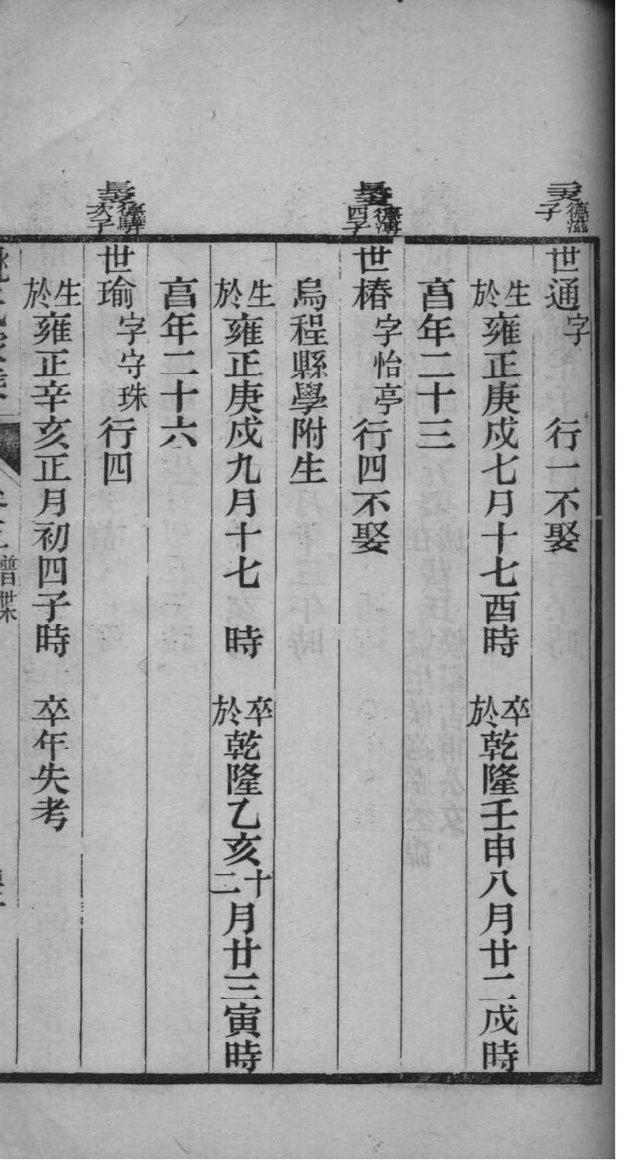 德滋子
世通字 行一不娶
生於雍正庚戌七月十七酉時 卒於乾隆壬申八月廿二戌時
亯年二十三
四子
世椿字怡亭行四不娶
烏程縣學附生
生於雍正庚戌九月十七 時 卒於乾隆乙亥十二月廿三寅時
亯年二十六
次子
世瑜字守珠行四
生於雍正辛亥正月初四子時 卒年失考
譜牒